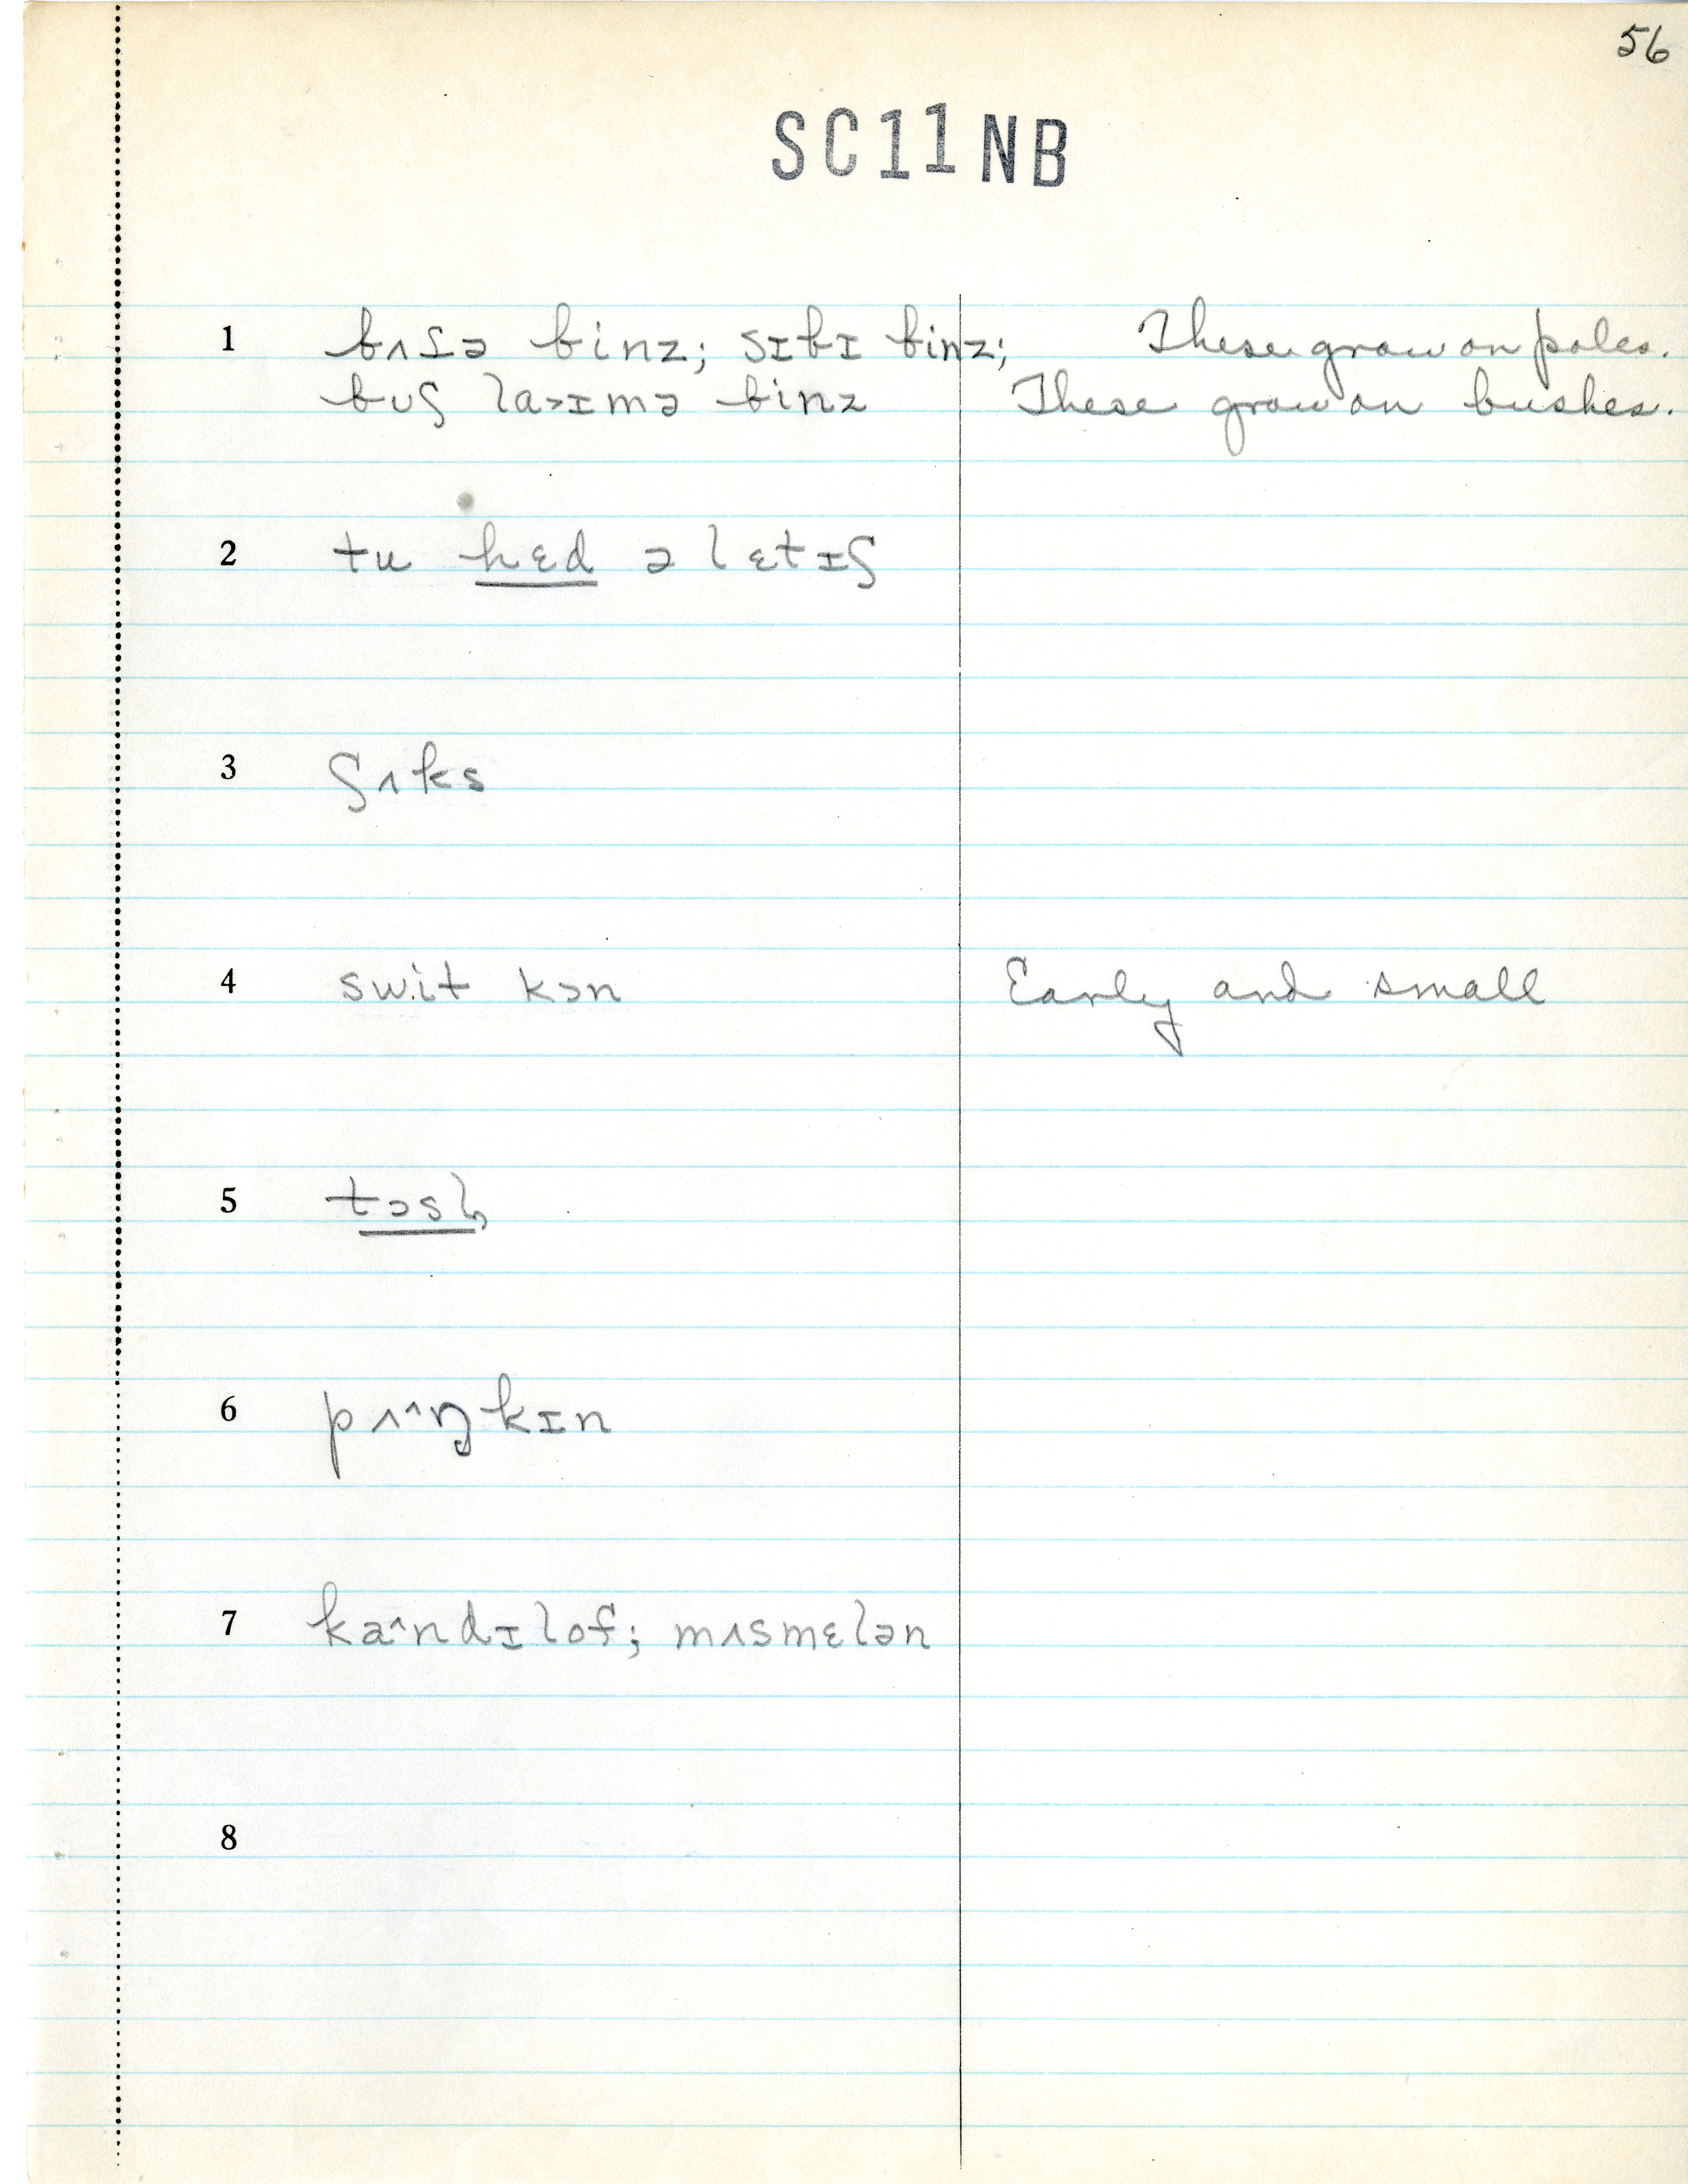 56
SC11NB
1 bʌɾə binz; sɪbɪ binz; These grow on poles.
bʊʃ la˃ɪmə binz These grow on bushes.
2 tu hɛd ə lɛtɪʃ
3 ʃʌks
4 swit kɔn Early and small
5 tɔsl̩
6 pʌ^ŋkɪn
7 ka^ndɪlof; mʌsmɛlən
8